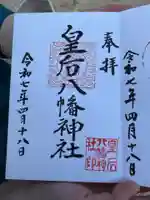 奉拝
皇后八幡神社
令和七年四月十八日
令和七年四月十八日